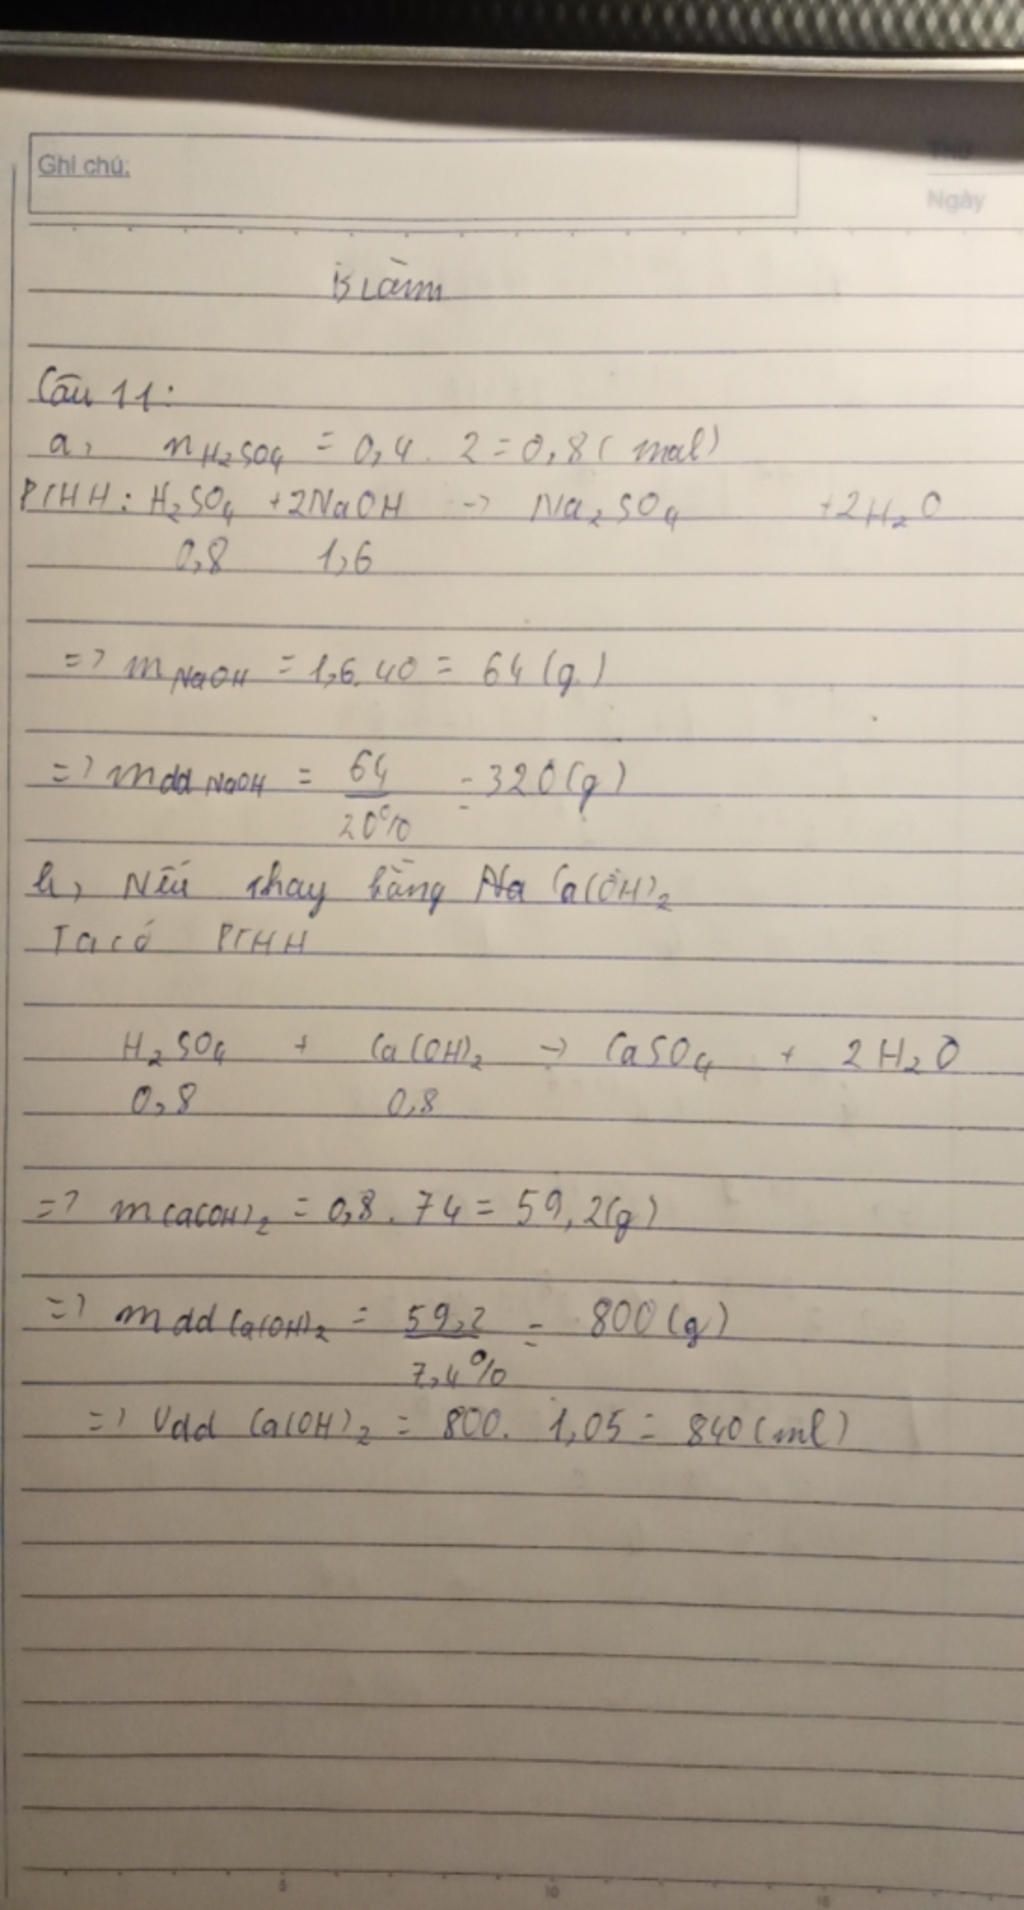 Ghi chú:
Thứ
Ngày
B Làm
Câu 11:
a, nH₂SO₄ = 0,4 . 2 = 0,8 ( mol)
PTHH : H₂SO₄ + 2NaOH -> Na₂SO₄ + 2H₂O
0,8 1,6
=> mNaOH = 1,6.40 = 64 (g)
=> mdd NaOH = 64/20% = 320(g)
b, Nếu thay bằng Ca(OH)₂
Ta có PTHH
H₂SO₄ + Ca(OH)₂ -> CaSO₄ + 2H₂O
0,8 0,8
=> mCa(OH)₂ = 0,8 . 74 = 59,2(g)
=> mdd Ca(OH)₂ = 59,2/7,4% = 800(g)
=> Vdd Ca(OH)₂ = 800. 1,05 = 840(ml)
5 10 15